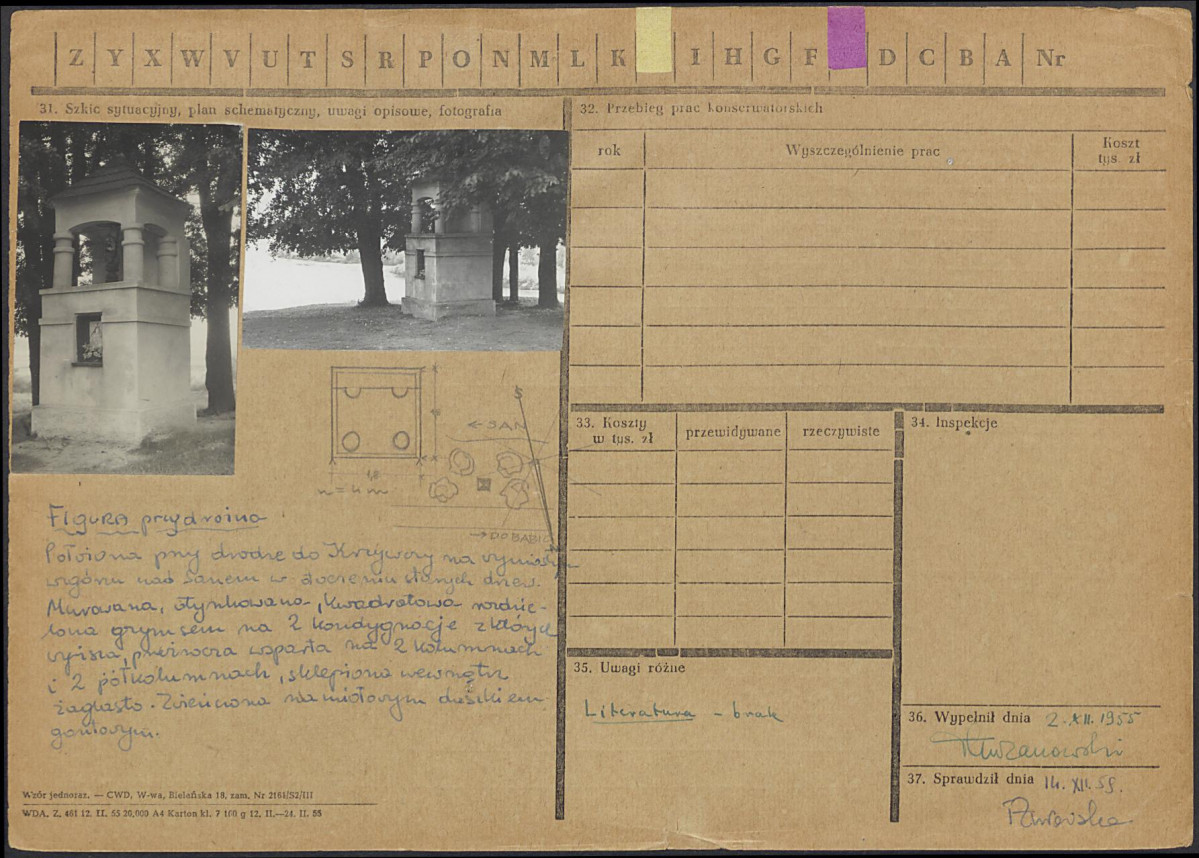 Z Y X W V U T S R P O N M L K I H G F D C B A Nr
31. Szkic sytuacyjny, plan schematyczny, uwagi opisowe, fotografia
← SAN
S
1,8
n = 4 m
→ DO BABIC
FIGURA przydrożna
Położona przy drodze do Krzywczy na
wzgórzu nad Sanem w otoczeniu starych drzew.
Murowana, otynkowana, kwadratowa rozdzie-
lona gzymsem na 2 kondygnacje z których
wyższa, przeźrocza wsparta na 2 kolumnach
i 2 półkolumnach, sklepiona wewnątrz
żaglasto. Zwieńczona namiotowym daszkiem
gontowym.
Wzór jednoraz. — CWD, W-wa, Bielańska 18, zam. Nr 2161/S2/III
WDA. Z. 461 12. II. 55 20.000 A4 Karton kl. 7 160 g 12. II.—24. II. 55
32. Przebieg prac konserwatorskich
rok Wyszczególnienie prac Koszt tys. zł
33. Koszty w tys. zł przewidywane rzeczywiste
34. Inspekcje
35. Uwagi różne
Literatura - brak
36. Wypełnił dnia 2.XII.1955
37. Sprawdził dnia 14.XII.59.